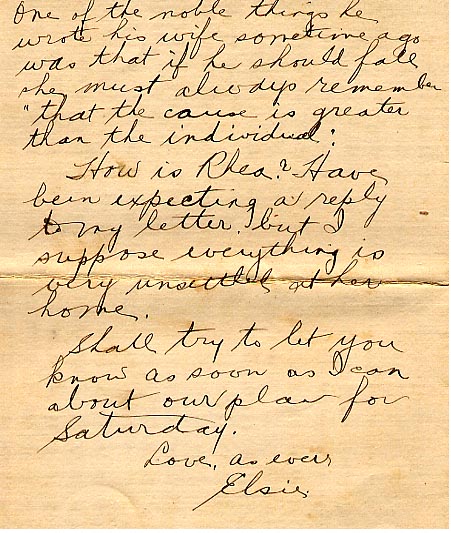 One of the noble things he
wrote his wife sometime ago
was that if he should fall
she must always remember
"that the cause is greater
than the individual".
How is Rhea? Have
been expecting a reply
to my letter, but I
suppose everything is
very unsettled at her
home.
Shall try to let you
know as soon as I can
about our plan for
Saturday.
Love, as ever
Elsie.